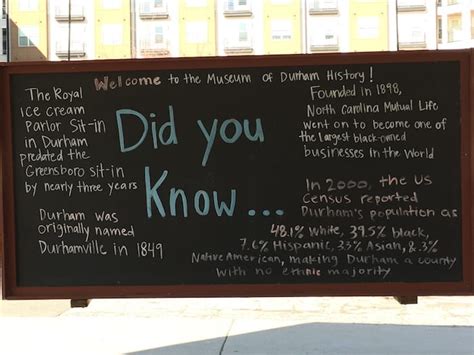 Welcome to the Museum of Durham History!
The Royal
ice cream
Parlor Sit-in
in Durham
predated the
Greensboro sit-in
by nearly three years
Durham was
originally named
Durhamville in 1849
Did you
Know...
Founded in 1898,
North Carolina Mutual Life
went on to become one of
the largest black-owned
businesses in the World
In 2000, the US
Census reported
Durham's population as
48.1% White, 39.5% black,
7.6% Hispanic, 3.3% Asian, &.3%
Native American, making Durham a county
with no ethnic majority